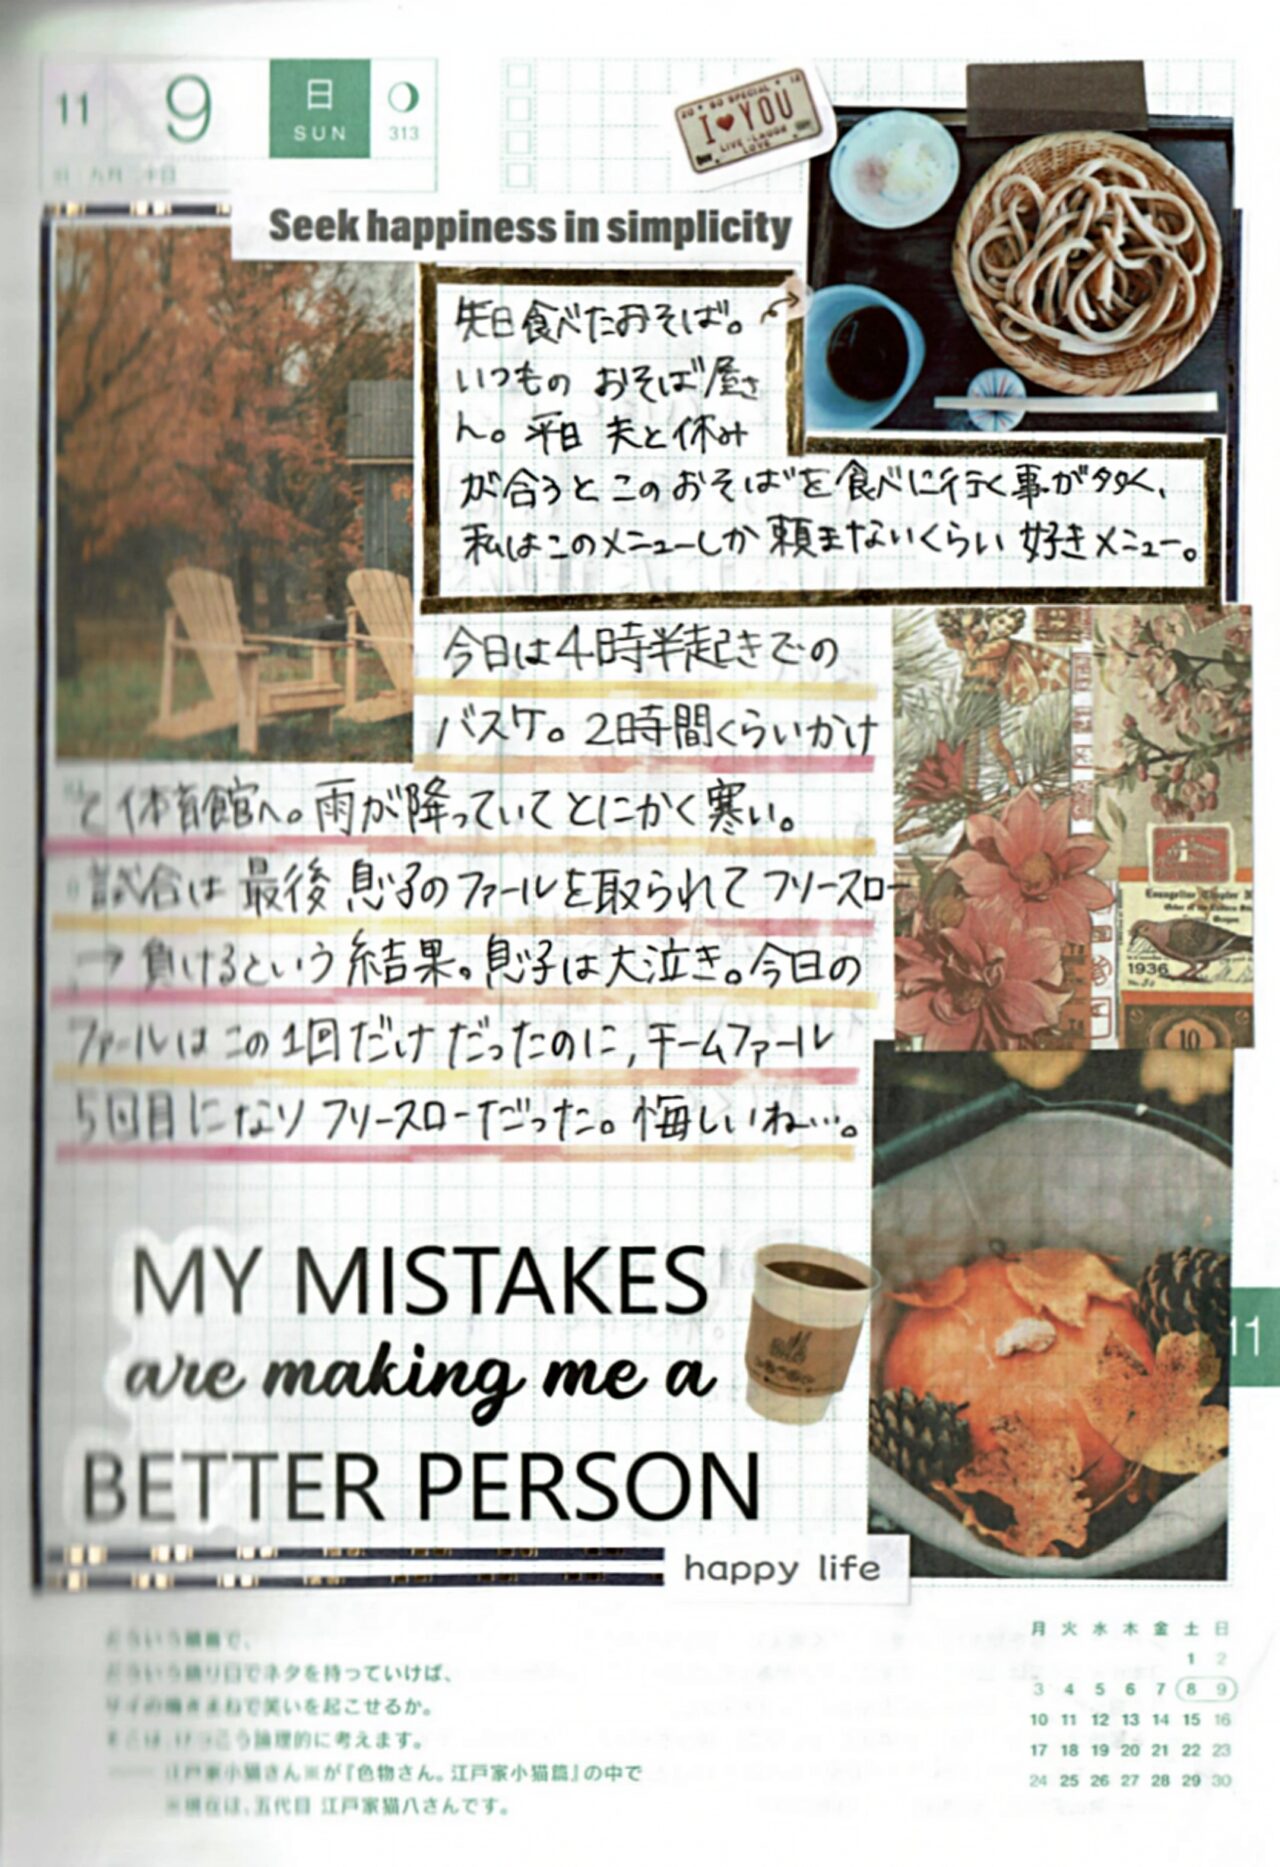 11
9
日
SUN
313
20 SO SPECIAL 12
I ♥ YOU
LIVE·LAUGH
LOVE
Seek happiness in simplicity
先日食べたおそば。
いつもの おそば屋さ
ん。平日 夫と休み
が合うと このおそばを食べに行く事が多く、
私はこのメニューしか 頼まないくらい 好きメニュー。
今日は4時半起きでの
バスケ。2時間くらいかけ
て体育館へ。雨が降っていてとにかく寒い。
試合は 最後 息子のファールを取られて フリースロー
→ 負けるという結果。息子は大泣き。今日の
ファールはこの1回だけだったのに,チームファール
5回目になりフリースローだった。悔しいね…。
1936
10
MY MISTAKES
are making me a
BETTER PERSON
11
happy life
どういう順番で、
どういう切り口でネタを持っていけば、
サイの鳴きまねで笑いを起こせるか。
そこは、けっこう論理的に考えます。
江戸家小猫さん※が『色物さん。江戸家小猫篇』の中で
※現在は、五代目 江戸家猫八さんです。
月 火 水 木 金 土 日
1 2
3 4 5 6 7 8 9
10 11 12 13 14 15 16
17 18 19 20 21 22 23
24 25 26 27 28 29 30